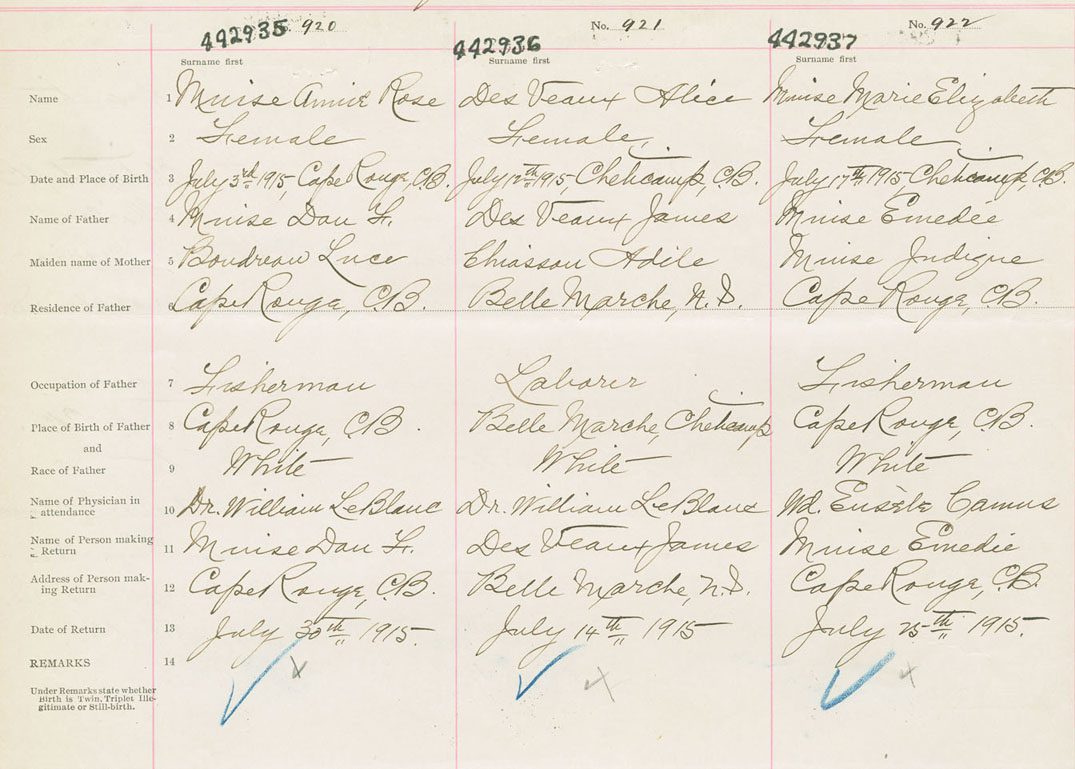 442935 920 442936 No. 921 442937 No. 922
Surname first Surname first Surname first
Name 1 Muise Annie Rose Des Veaux Alice Muise Marie Elizabeth
Sex 2 Female Female Female
Date and Place of Birth 3 July 3rd 1915 Cape Rouge, C.B. July 12th 1915, Cheticamp, C.B. July 17th 1915, Cheticamp, C.B.
Name of Father 4 Muise Dan H. Des Veaux James Muise Emedée
Maiden name of Mother 5 Boudreau Luce Chiasson Adile Muise Judique
Residence of Father 6 Cape Rouge, C.B. Belle Marche, N.S. Cape Rouge, C.B.
Occupation of Father 7 Fisherman Laborer Fisherman
Place of Birth of Father 8 Cape Rouge, C.B. Belle Marche, Cheticamp Cape Rouge, C.B.
and
Race of Father 9 White White White
Name of Physician in
attendance 10 Dr. William LeBlanc Dr. William LeBlanc Wd. Eusèbe Camus
Name of Person making
Return 11 Muise Dan H. Des Veaux James Muise Emedée
Address of Person mak-
ing Return 12 Cape Rouge, C.B. Belle Marche, N.S. Cape Rouge, C.B.
Date of Return 13 July 30th 1915. July 14th 1915 July 25th 1915.
REMARKS 14
Under Remarks state whether
Birth is Twin, Triplet Ille-
gitimate or Still-birth.